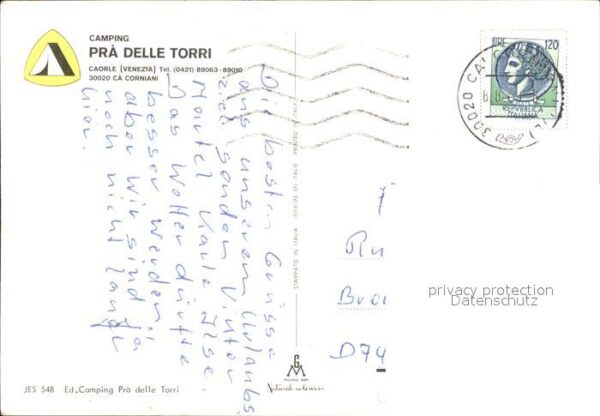 CAMPING
PRÀ DELLE TORRI
CAORLE (VENEZIA) Tel. (0421) 89063-89010
30020 CÀ CORNIANI
LIRE 120
REPVBBLICA
ITALIANA
30020 CA
Die besten Grüsse
aus unserem Urlaubs
ziel senden Vinter
Martel Karla Ilse.
Das Wetter dürfte
besser werden,
aber wir sind ja
noch nicht lange
hier.
STAMPATO IN ITALIA IMPRIMÉ EN ITALIE PRINTED IN ITALY
Ru
Bru
D74
privacy protection
Datenschutz
JES 548 Ed. Camping Prà delle Torri
GM
MILANO